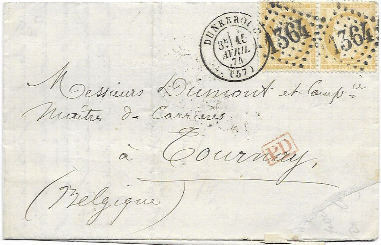 DUNKERQUE
AVRIL
74
(57)
1364
1364
Messieurs Dumont et Comp.ie
Maitres de Carrières
à Tournay,
PD
(Belgique)